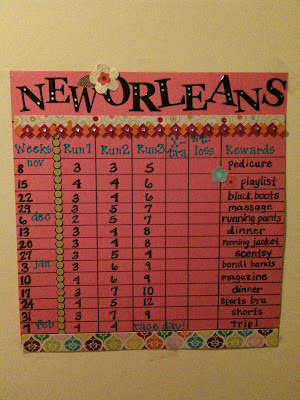 NEW ORLEANS
Weeks Run1 Run2 Run3 X-tra wt. loss Rewards
nov
8 3 3 5 pedicure
15 4 4 6 playlist
22 3 4 6 black boots
29 3 5 7 massage
dec
6 5 7 running pants
13 3 4 8 dinner
20 3 4 8 running jacket
27 3 5 4 scentsy
jan
3 6 9 bondi bands
10 4 6 9 magazine
17 3 7 10 dinner
24 4 5 12 sports bra
31 3 7 9 shorts
feb
4 4 race day! trip!